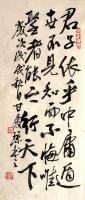 君子依乎中庸遁
世不見知而不悔惟
聖者能之行天下
歲次戊戌秋